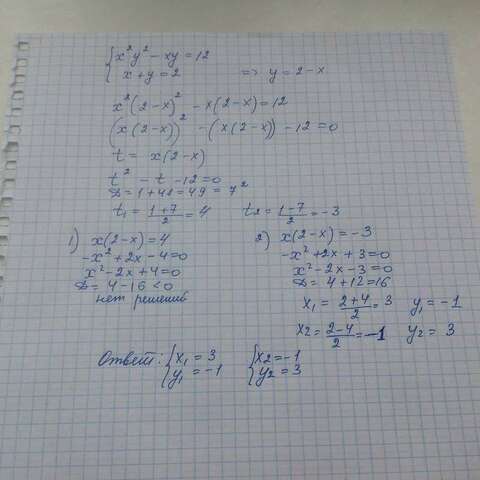 {x²y² - xy = 12
x + y = 2 => y = 2 - x
x²(2-x)² - x(2-x) = 12
(x(2-x))² - (x(2-x)) - 12 = 0
t = x(2-x)
t² - t - 12 = 0
D = 1 + 48 = 49 = 7²
t₁ = (1+7)/2 = 4 t₂ = (1-7)/2 = -3
1) x(2-x) = 4
-x² + 2x - 4 = 0
x² - 2x + 4 = 0
D = 4 - 16 < 0
нет решений
2) x(2-x) = -3
-x² + 2x + 3 = 0
x² - 2x - 3 = 0
D = 4 + 12 = 16
x₁ = (2+4)/2 = 3 y₁ = -1
x₂ = (2-4)/2 = -1 y₂ = 3
Ответ: {x₁ = 3 {x₂ = -1
y₁ = -1 y₂ = 3